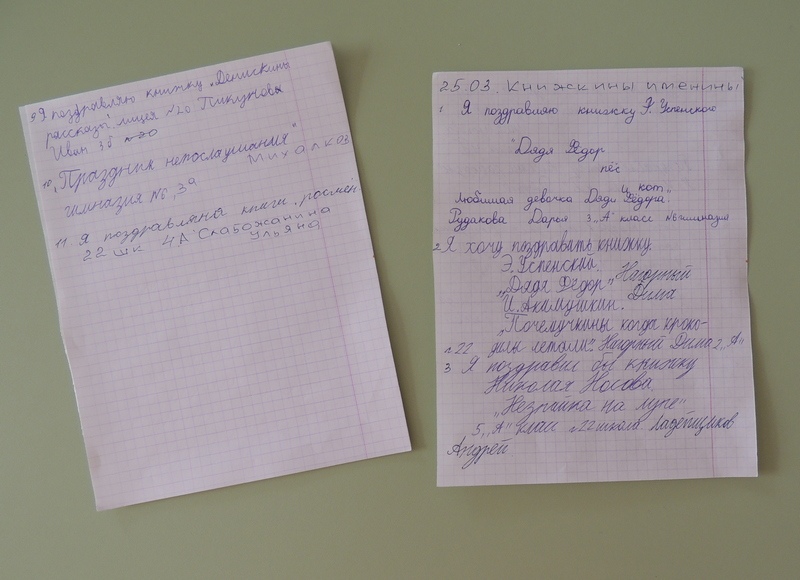 9 Я поздравляю книжку „Денискины
рассказы" лицея №20 Пикунова
Иван 3б
10. „Праздник непослушания"
Михалков
гимназия №6, 3а
11. Я поздравляю книги
22 шк 4А Слабожанина
Ульяна
25.03. Книжкины именины
1 Я поздравляю книжку Э. Успенского
"Дядя Фёдор
пёс
и кот"
Любимая девочка Дяди Фёдора.
Рудакова Дарья 3 „А" класс №6 гимназия
2 Я хочу поздравать книжку.
Э. Успенский.
„Дядя Фёдор" Нагорный
И. Акимушкин. Дима
„Почемучкины когда кроко-
№22 дилы летали". Нагорный Дима 2 „А"
3 Я поздравил бы книжку
Николая Носова
„Незнайка на луне"
5 „А" класс №22 школа Ладейщиков
Андрей